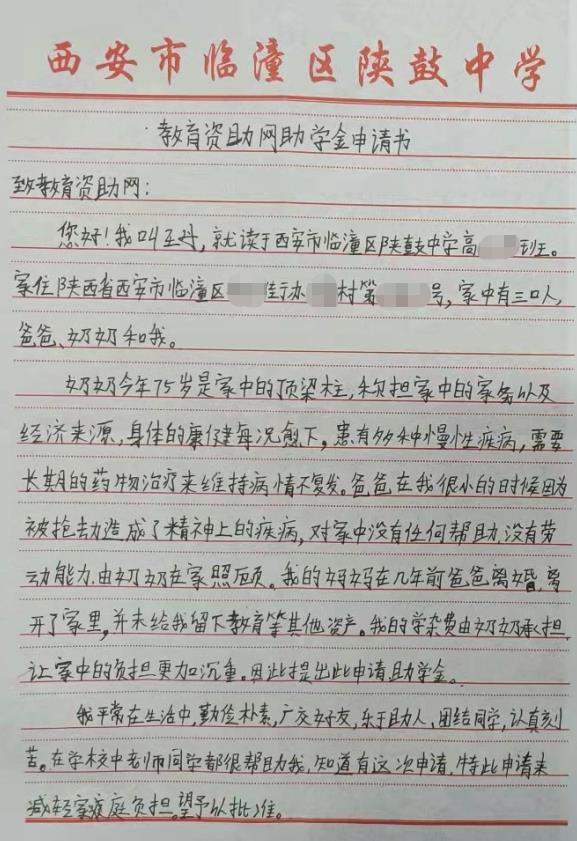 西安市临潼区陕鼓中学
教育资助网助学金申请书
致教育资助网：
您好！我叫王丹，就读于西安市临潼区陕鼓中学高班。
家住陕西省西安市临潼区街办村第号，家中有三口人，
爸爸、奶奶和我。
奶奶今年75岁是家中的顶梁柱，承担家中的家务以及
经济来源，身体的康健每况愈下，患有多种慢性疾病，需要
长期的药物治疗来维持病情不复发。爸爸在我很小的时候因为
被抢劫造成了精神上的疾病，对家中没有任何帮助，没有劳
动能力，由奶奶在家照顾。我的妈妈在几年前爸爸离婚，离
开了家里，并未给我留下教育等其他资产。我的学杂费由奶奶承担，
让家中的负担更加沉重。因此提出此申请助学金。
我平常在生活中，勤俭朴素，广交好友，乐于助人，团结同学，认真刻
苦。在学校中老师同学都很帮助我，知道有这次申请，特此申请来
减轻家庭负担。望予以批准。